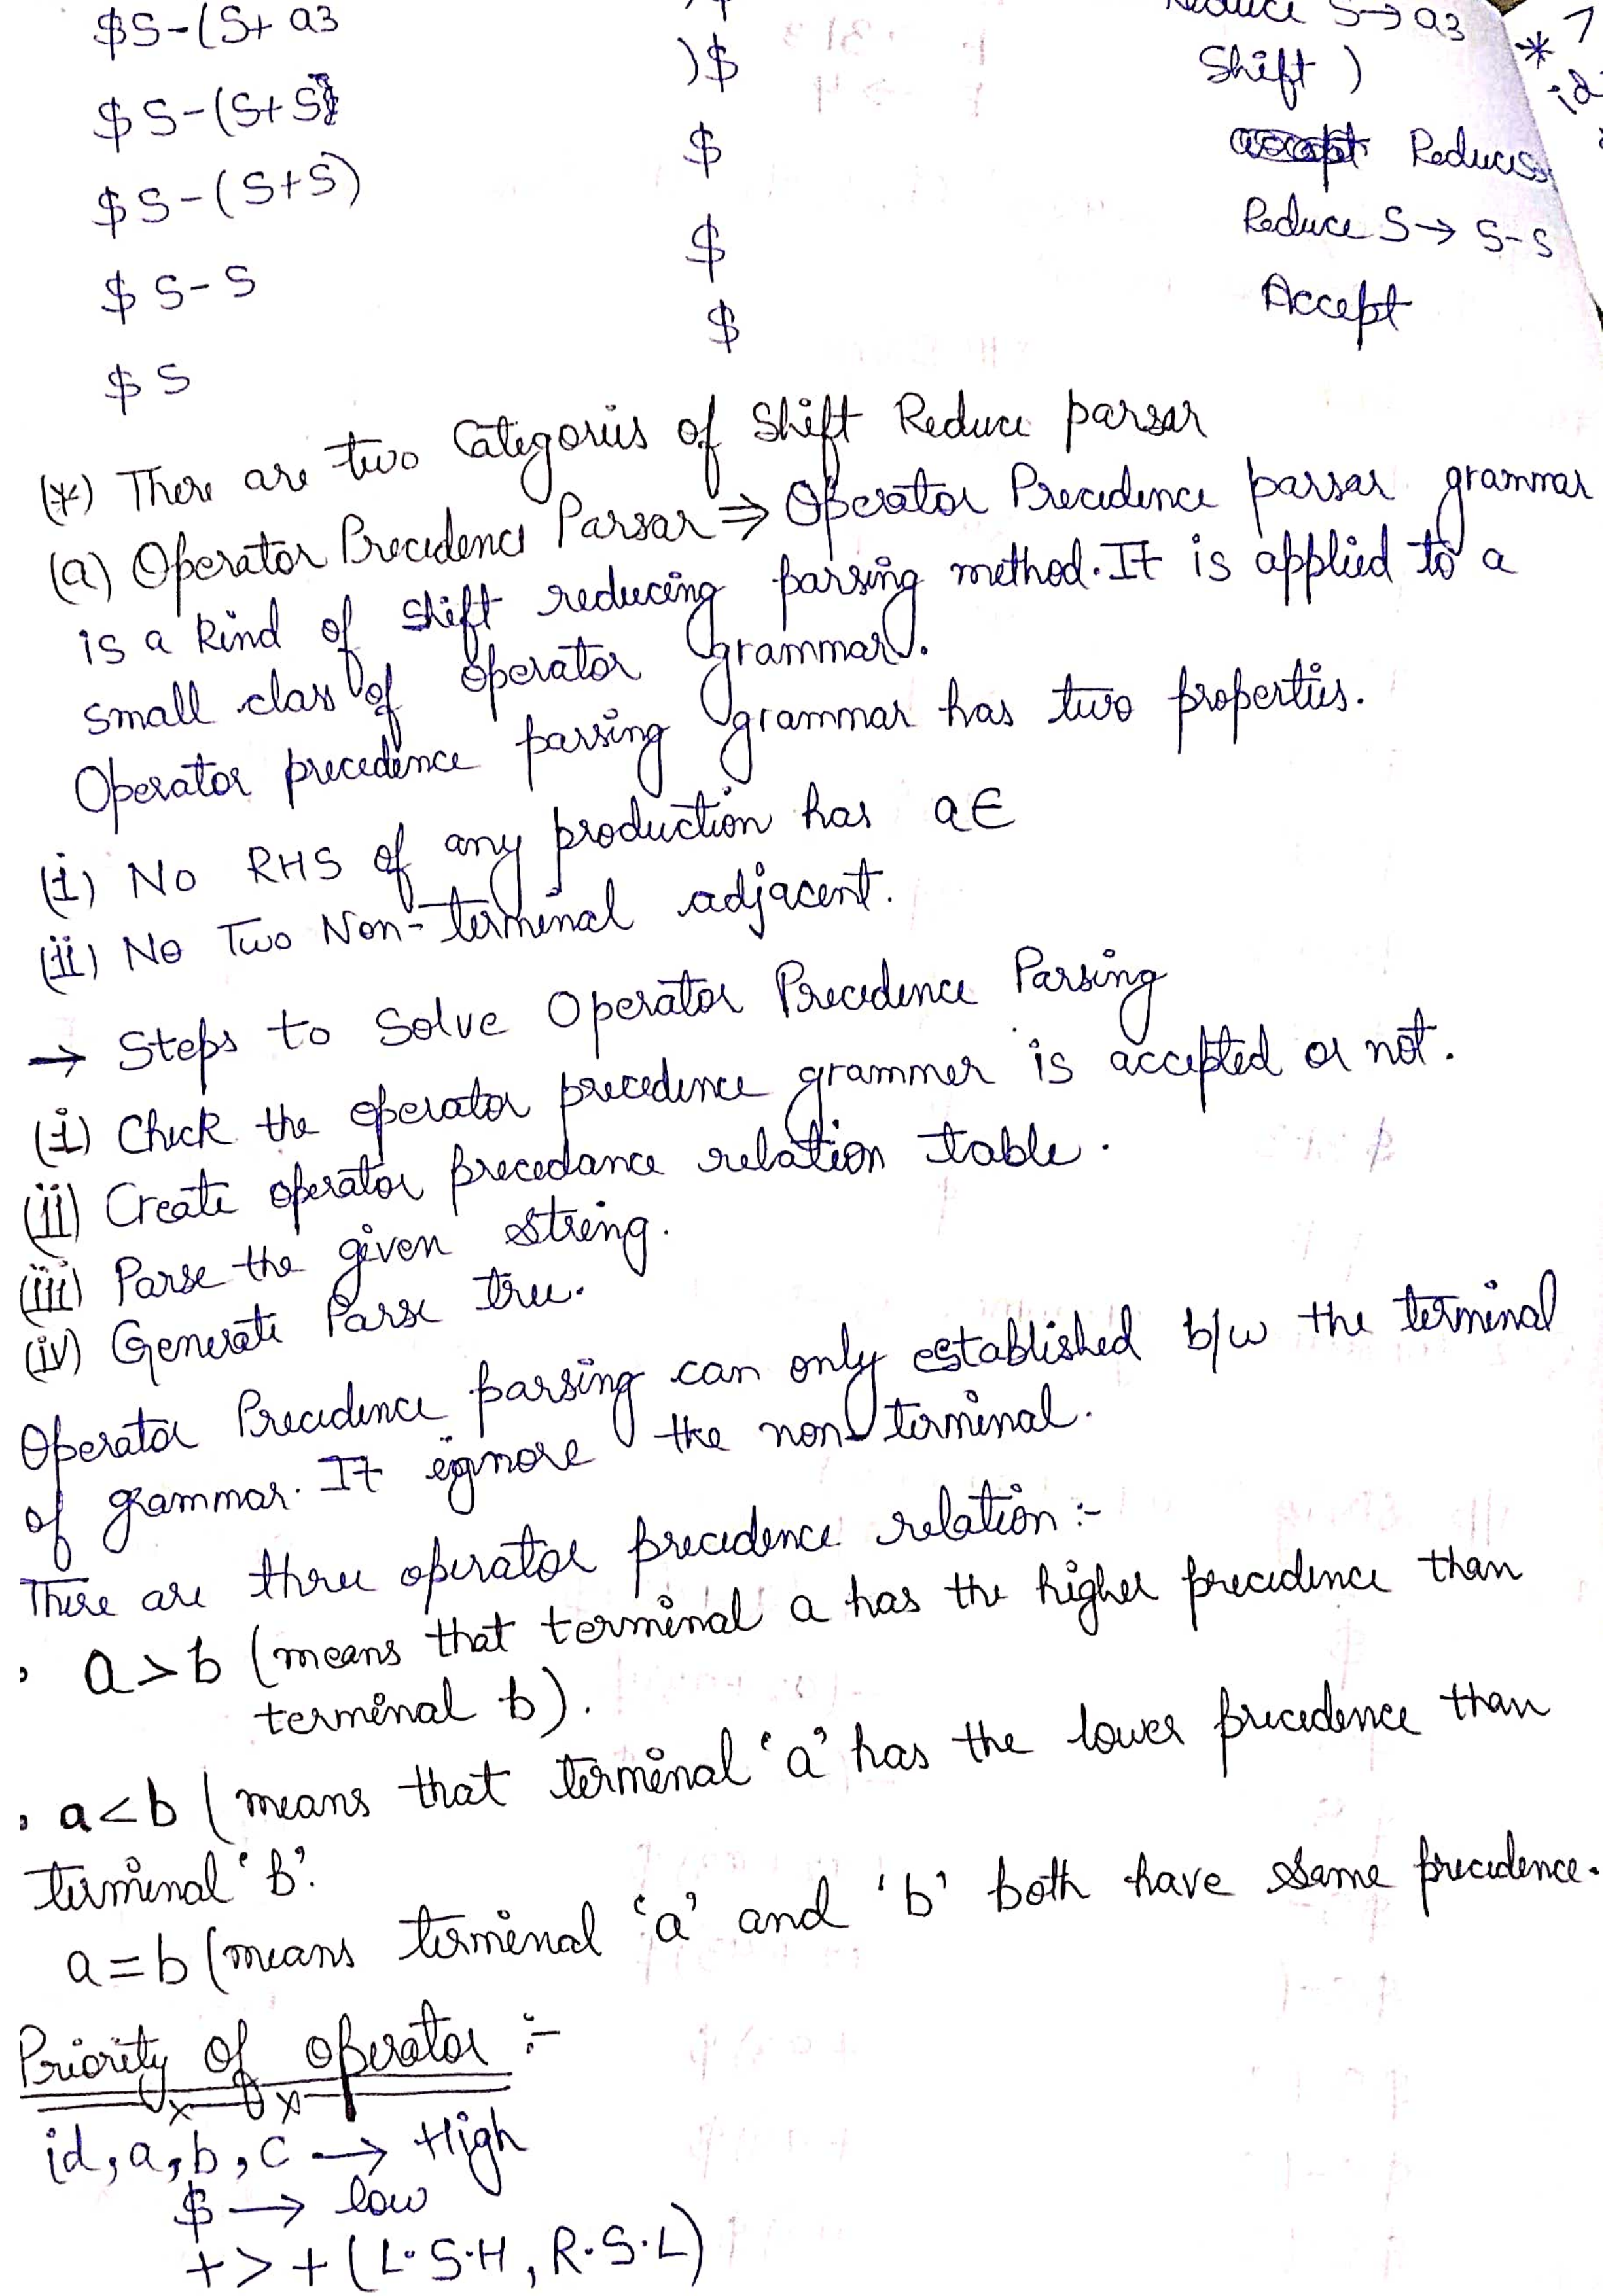 $S-(S+ a3 )$ Reduce S→a3
$S-(S+S )$ Shift )
$S-(S+S) $ Reduces
$S-S $ Reduce S→ S-S
$S $ Accept
* 7
id
(*) There are two Categoriis of Shift Reduce parsar
(a) Operator Precedence Parsar ⇒ Operator Precedence parsar grammar
is a kind of shift reducing parsing method. It is applied to a
small class of operator grammar.
Operator precedence parsing grammar has two properties.
(i) No RHS of any production has a ∈
(ii) No Two Non-terminal adjacent.
→ Steps to Solve Operator Precedence Parsing
(i) Check the operator precedence grammer is accepted or not.
(ii) Create operator precedance relation table.
(iii) Parse the given string.
(iv) Generate Parse tree.
Operator Precedence parsing can only established b/w the terminal
of grammar. It egnore the non terminal.
There are three operator precedence relation :-
a > b (means that terminal a has the higher precedence than
terminal b).
a < b ( means that terminal 'a' has the lower precedence than
terminal 'b'.
a = b (means terminal 'a' and 'b' both have same precedence.
Priority of operator :-
id, a, b, c → High
$ → low
+ > + (L.S.H, R.S.L)